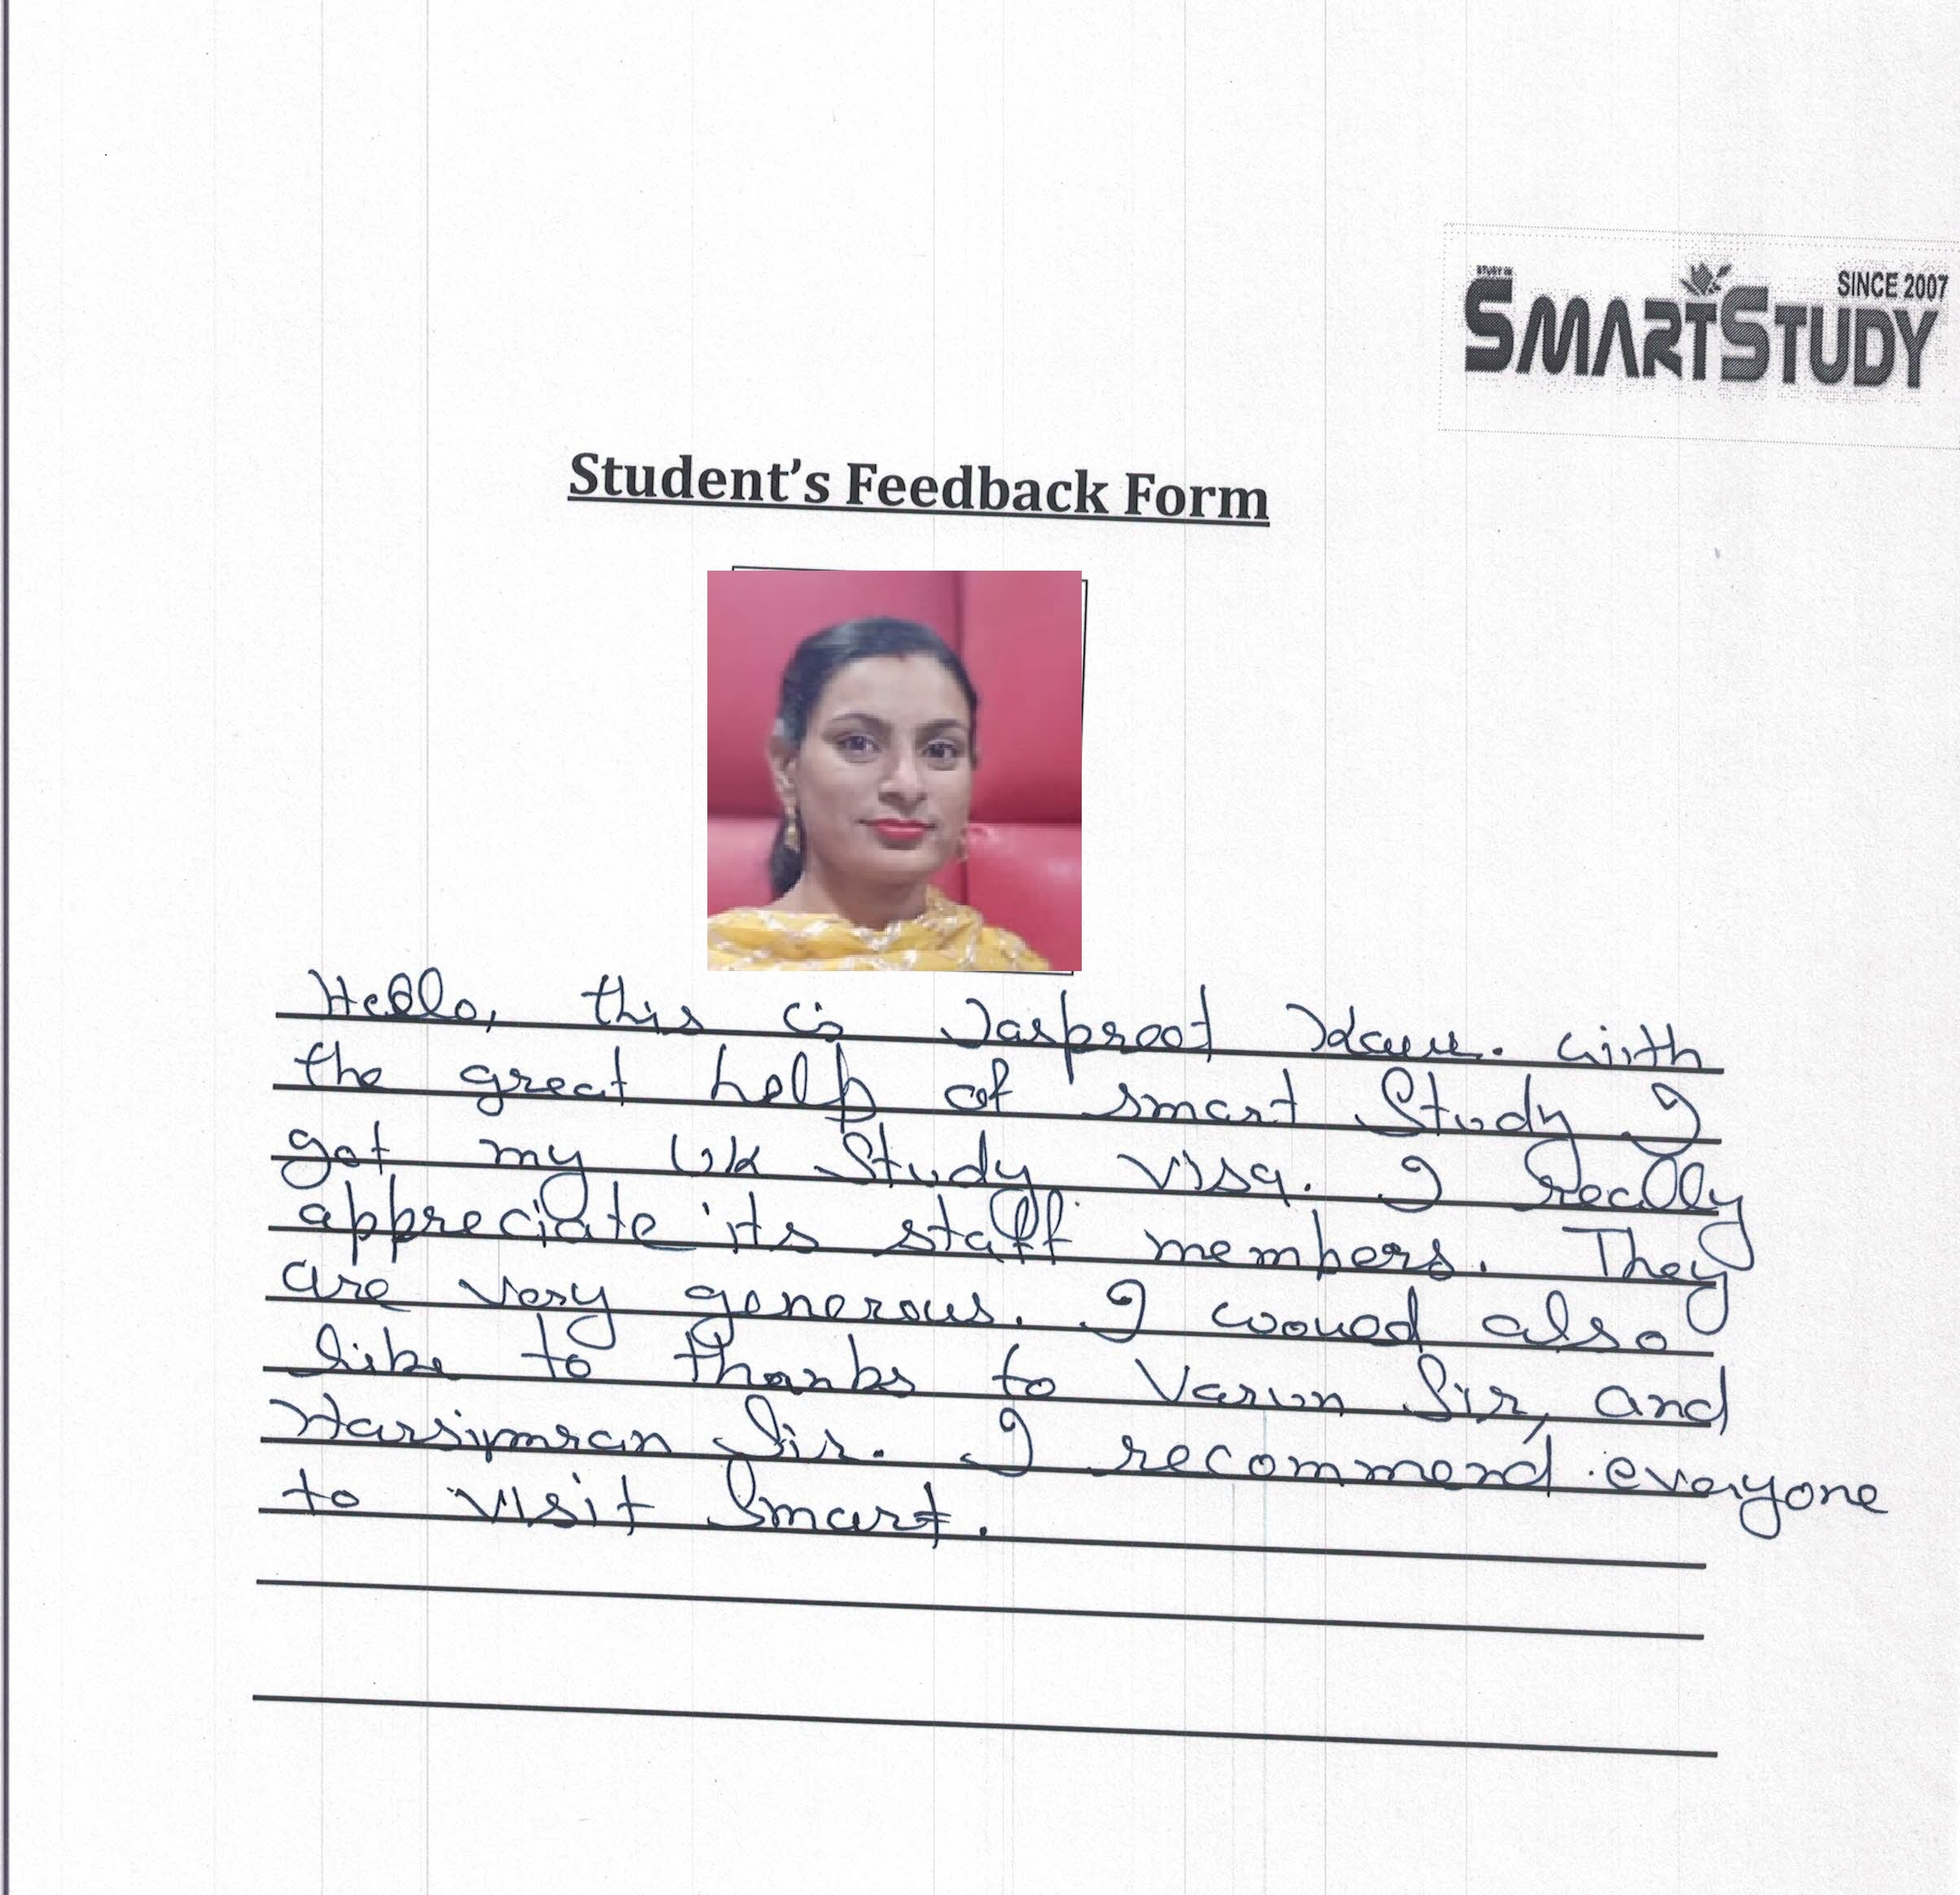 STUDY IN
SINCE 2007
SMARTSTUDY
Student's Feedback Form
Hello, this is Jasproot Kaur. with
the great help of smart Study I
got my UK Study visa. I really
appreciate its staff members. They
are very generous. I wouod also
like to thanks to Varun Sir, and
Harsimran Sir. I recommend everyone
to visit Smart.